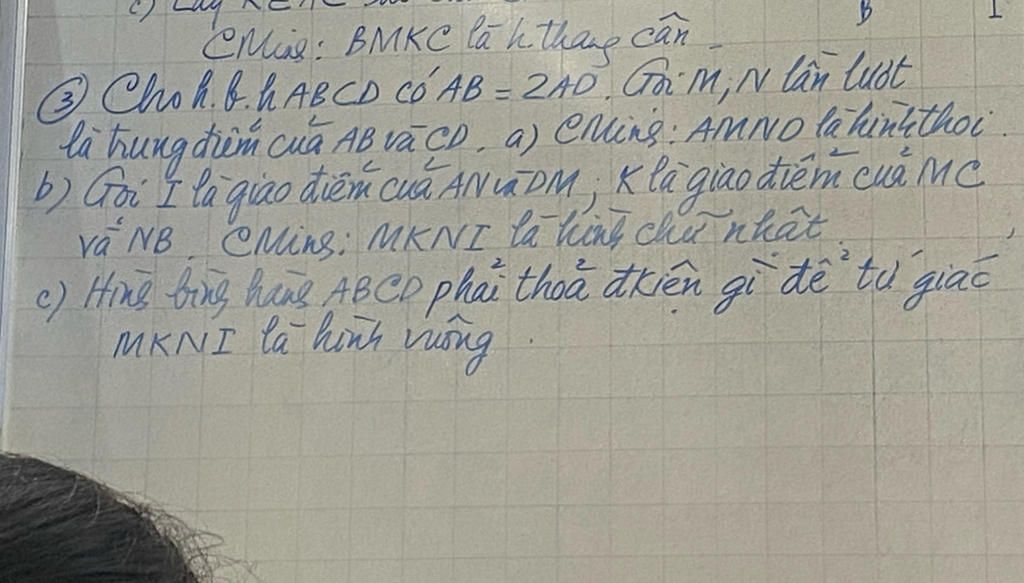 c) Lấy K
B I
CMing: BMKC là h.thang cân
③ Cho h.b.h ABCD có AB = 2AD. Gọi M, N lần lượt
là trung điểm của AB và CD. a) CMing: AMND là hình thoi.
b) Gọi I là giao điểm của AN và DM, K là giao điểm của MC
và NB. CMing: MKNI là hình chữ nhật.
c) Hình bình hành ABCD phải thoả đkiện gì để tứ giác
MKNI là hình vuông.